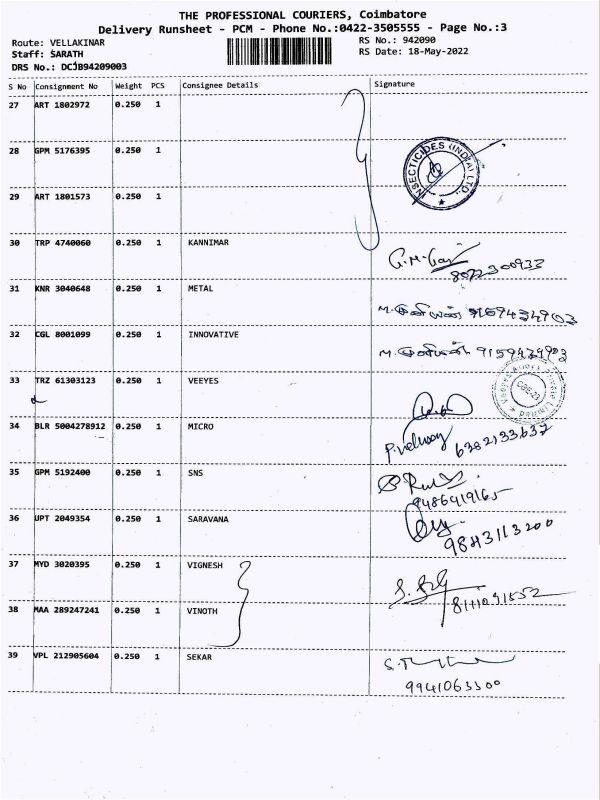 THE PROFESSIONAL COURIERS, Coimbatore
Delivery Runsheet - PCM - Phone No.:0422-3505555 - Page No.:3
Route: VELLAKINAR
RS No.: 942090
Staff: SARATH
RS Date: 18-May-2022
DRS No.: DCJB94209003
S No Consignment No Weight PCS Consignee Details Signature
27 ART 1802972 0.250 1
28 GPM 5176395 0.250 1
INSECTICIDES (INDIA) LTD.
29 ART 1801573 0.250 1
30 TRP 4740060 0.250 1 KANNIMAR
8072300933
31 KNR 3040648 0.250 1 METAL
9159434903
32 CGL 8001099 0.250 1 INNOVATIVE
9159434903
33 TRZ 61303123 0.250 1 VEEYES
34 BLR 5004278912 0.250 1 MICRO
6382133637
35 GPM 5192400 0.250 1 SNS
9486419165
36 UPT 2049354 0.250 1 SARAVANA
9843113200
37 MYD 3020395 0.250 1 VIGNESH
38 MAA 289247241 0.250 1 VINOTH
8111091552
39 VPL 212905604 0.250 1 SEKAR
9941063300